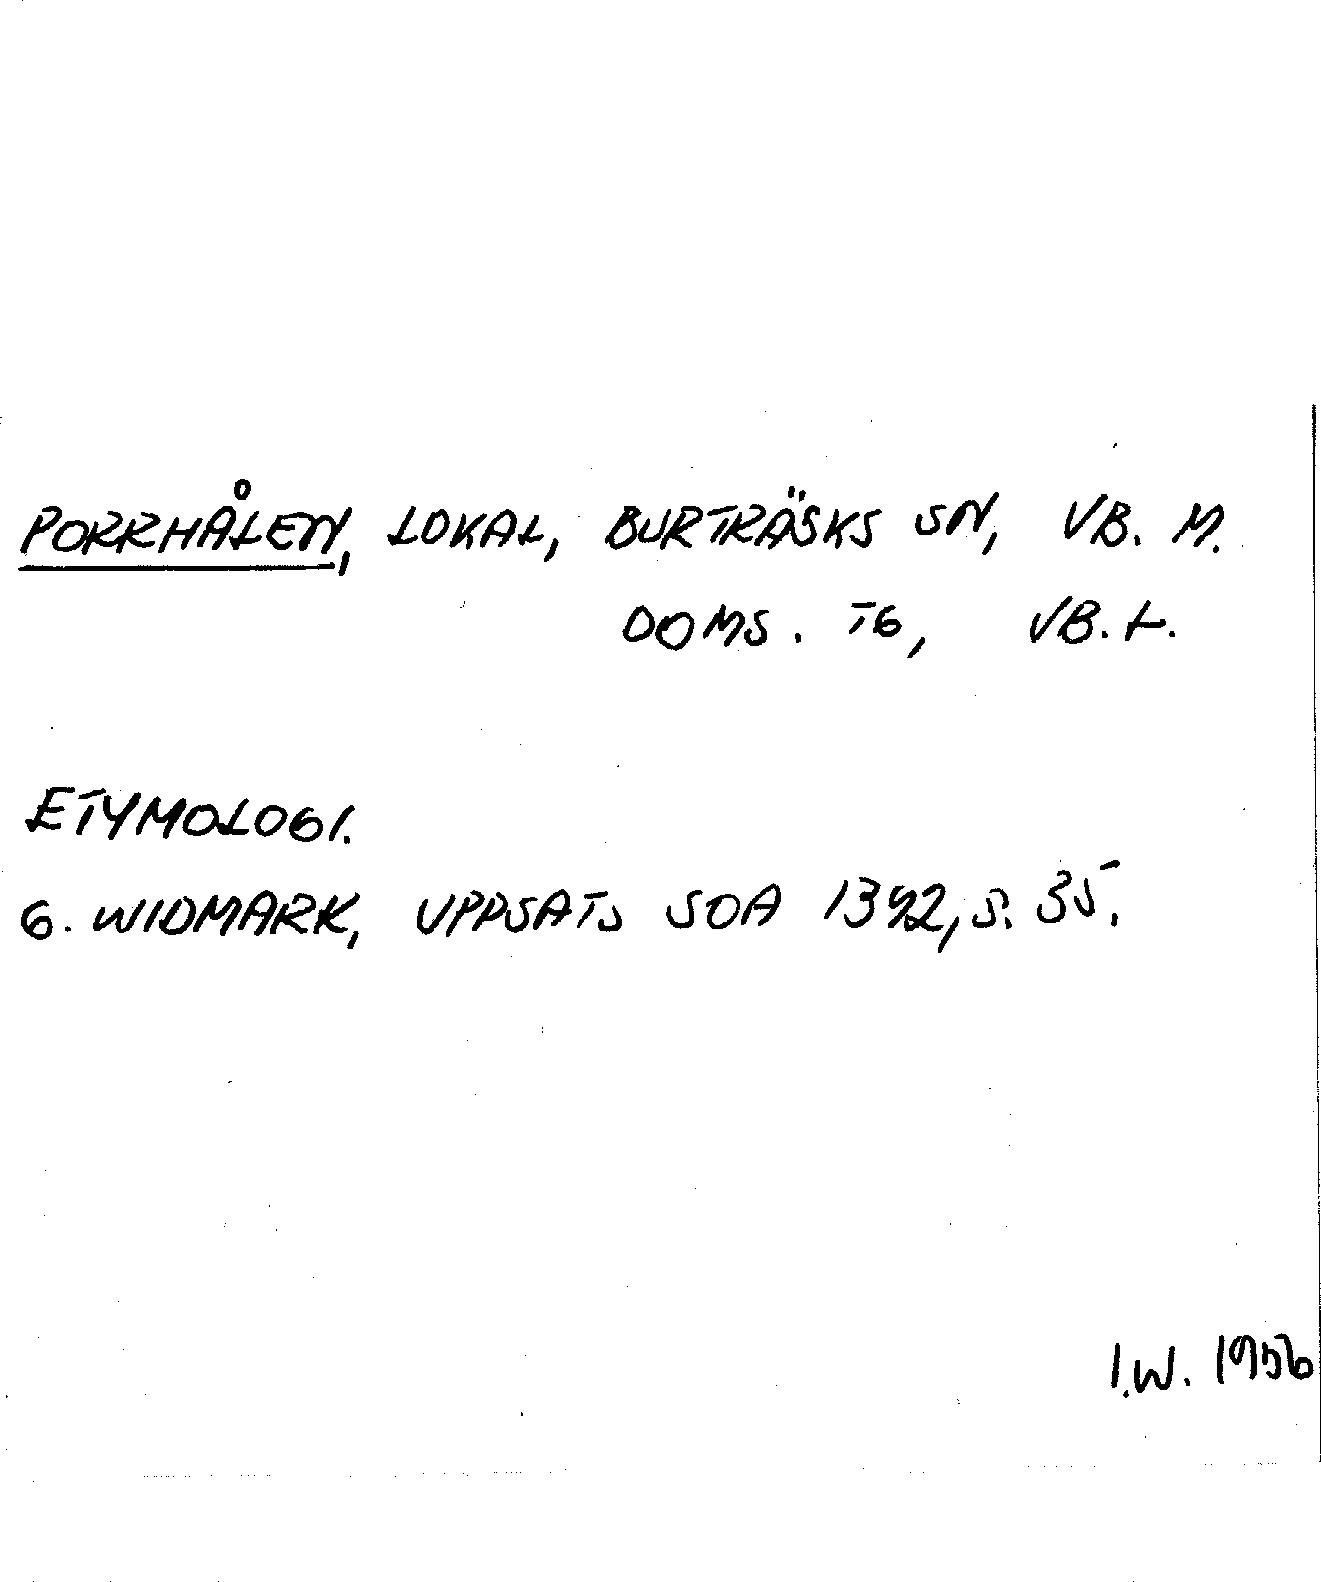 PORRHÅLEN, LOKAL, BURTRÄSKS SN, VB. M.
DOMS. TG, VB. L.
ETYMOLOGI.
G. WIDMARK, UPPSATS SOA 1392, S. 35.
I.W. 1956